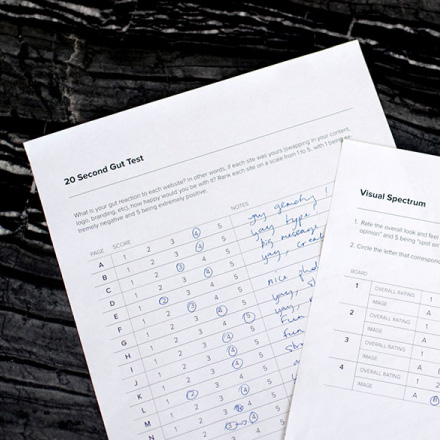 20 Second Gut Test
What is your gut reaction to each website? In other words, if each site was yours (swapping in your content,
logo, branding, etc), how happy would you be with it? Rank each site on a scale from 1 to 5, with 1 being ex-
tremely negative and 5 being extremely positive.
PAGE SCORE NOTES
A 1 2 3 4 5 yay geometry!
B 1 2 3 4 5 yay type
C 1 2 3 4 5 big message
D 1 2 3 4 5 yay,
E 1 2 3 4 5
F 1 2 3 4 5 nice
G 1 2 3 4 5 yay,
H 1 2 3 4 5 yay,
I 1 2 3 4 5 fun
J 1 2 3 4 5 fun
K 1 2 3 4 5
L 1 2 3 4 5
M 1 2 3 4
N 1 2
Visual Spectrum
1. Rate the overall look and feel
opinion" and 5 being "spot
2. Circle the letter that
BOARD
1 OVERALL RATING 1
IMAGE A
2 OVERALL RATING 1
IMAGE A
3 OVERALL RATING 1
IMAGE A
4 OVERALL RATING 1
IMAGE A